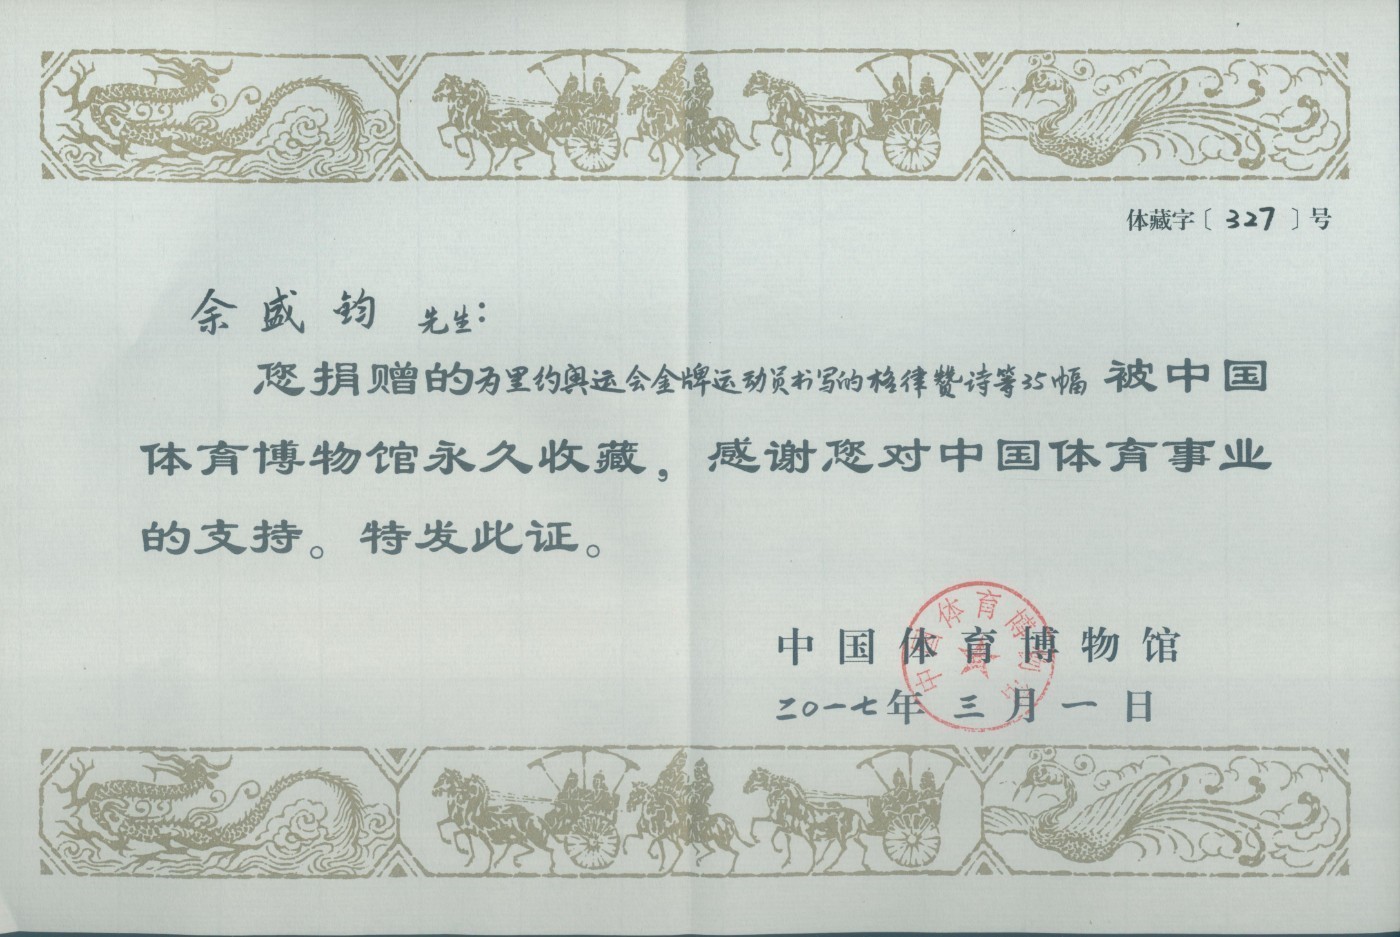 体藏字〔 327 〕号
余盛钧 先生：
您捐赠的为里约奥运会金牌运动员书写的格律赞诗等35幅 被中国
体育博物馆永久收藏，感谢您对中国体育事业
的支持。特发此证。
中国体育博物馆
二〇一七年 三 月 一 日
中国体育博物馆